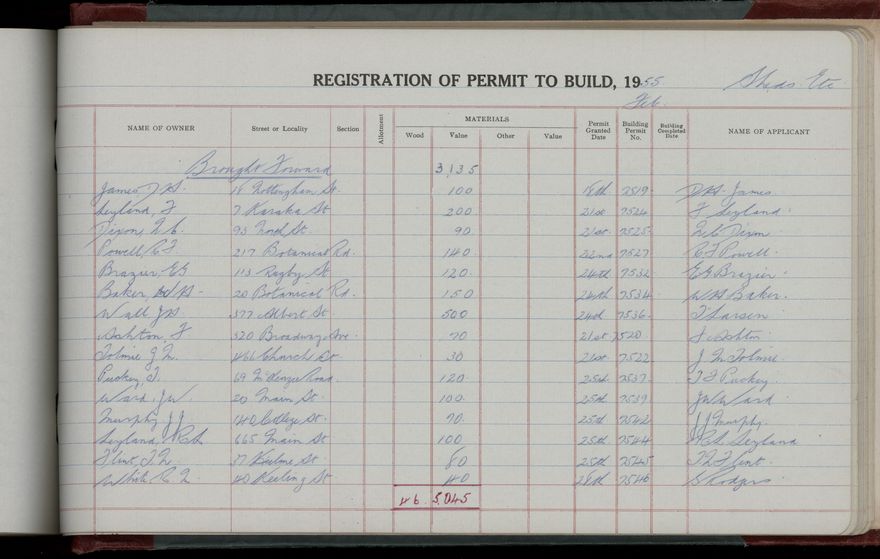 REGISTRATION OF PERMIT TO BUILD, 1955 Sheds Etc
Feb.
NAME OF OWNER Street or Locality Section Allotment MATERIALS Wood Value Other Value Permit Granted Date Building Permit No. Building Completed Date NAME OF APPLICANT
Brought Forward 3,135
James 18 Nottingham St. 100 18th 7519 James
Leyland, F 7 Karaka St 200 21st 7524 F Leyland
Dixon, 93 St. 90 21st 7525 Dixon
Powell C F 217 Botanical Rd. 140 22nd 7527 C F Powell
Brazier, E G 113 Rugby St 120 24th 7532 E G Brazier
Baker, W H 20 Botanical Rd. 150 24th 7534 W H Baker.
Wall J 377 Albert St 500 24th 7536 Larsen
Ashton, F 320 Broadway Ave 70 21st 7520 F Ashton
Tolmie J M. 466 Church St 30 21st 7522 J M Tolmie
Puckey, T. 69 McKenzie Road. 120 25th 7537 Puckey
Ward, J W 20 Main St. 100 25th 7539 J W Ward
Murphy J J. 140 College St. 70 25th 7542 J J Murphy.
Leyland, R A 665 Main St 100 25th 7544 R A Leyland
Flint, St 80 25th 7545 Flint.
White 40 Keeling St 40 28th 7546 S Rodgers
46 5,045